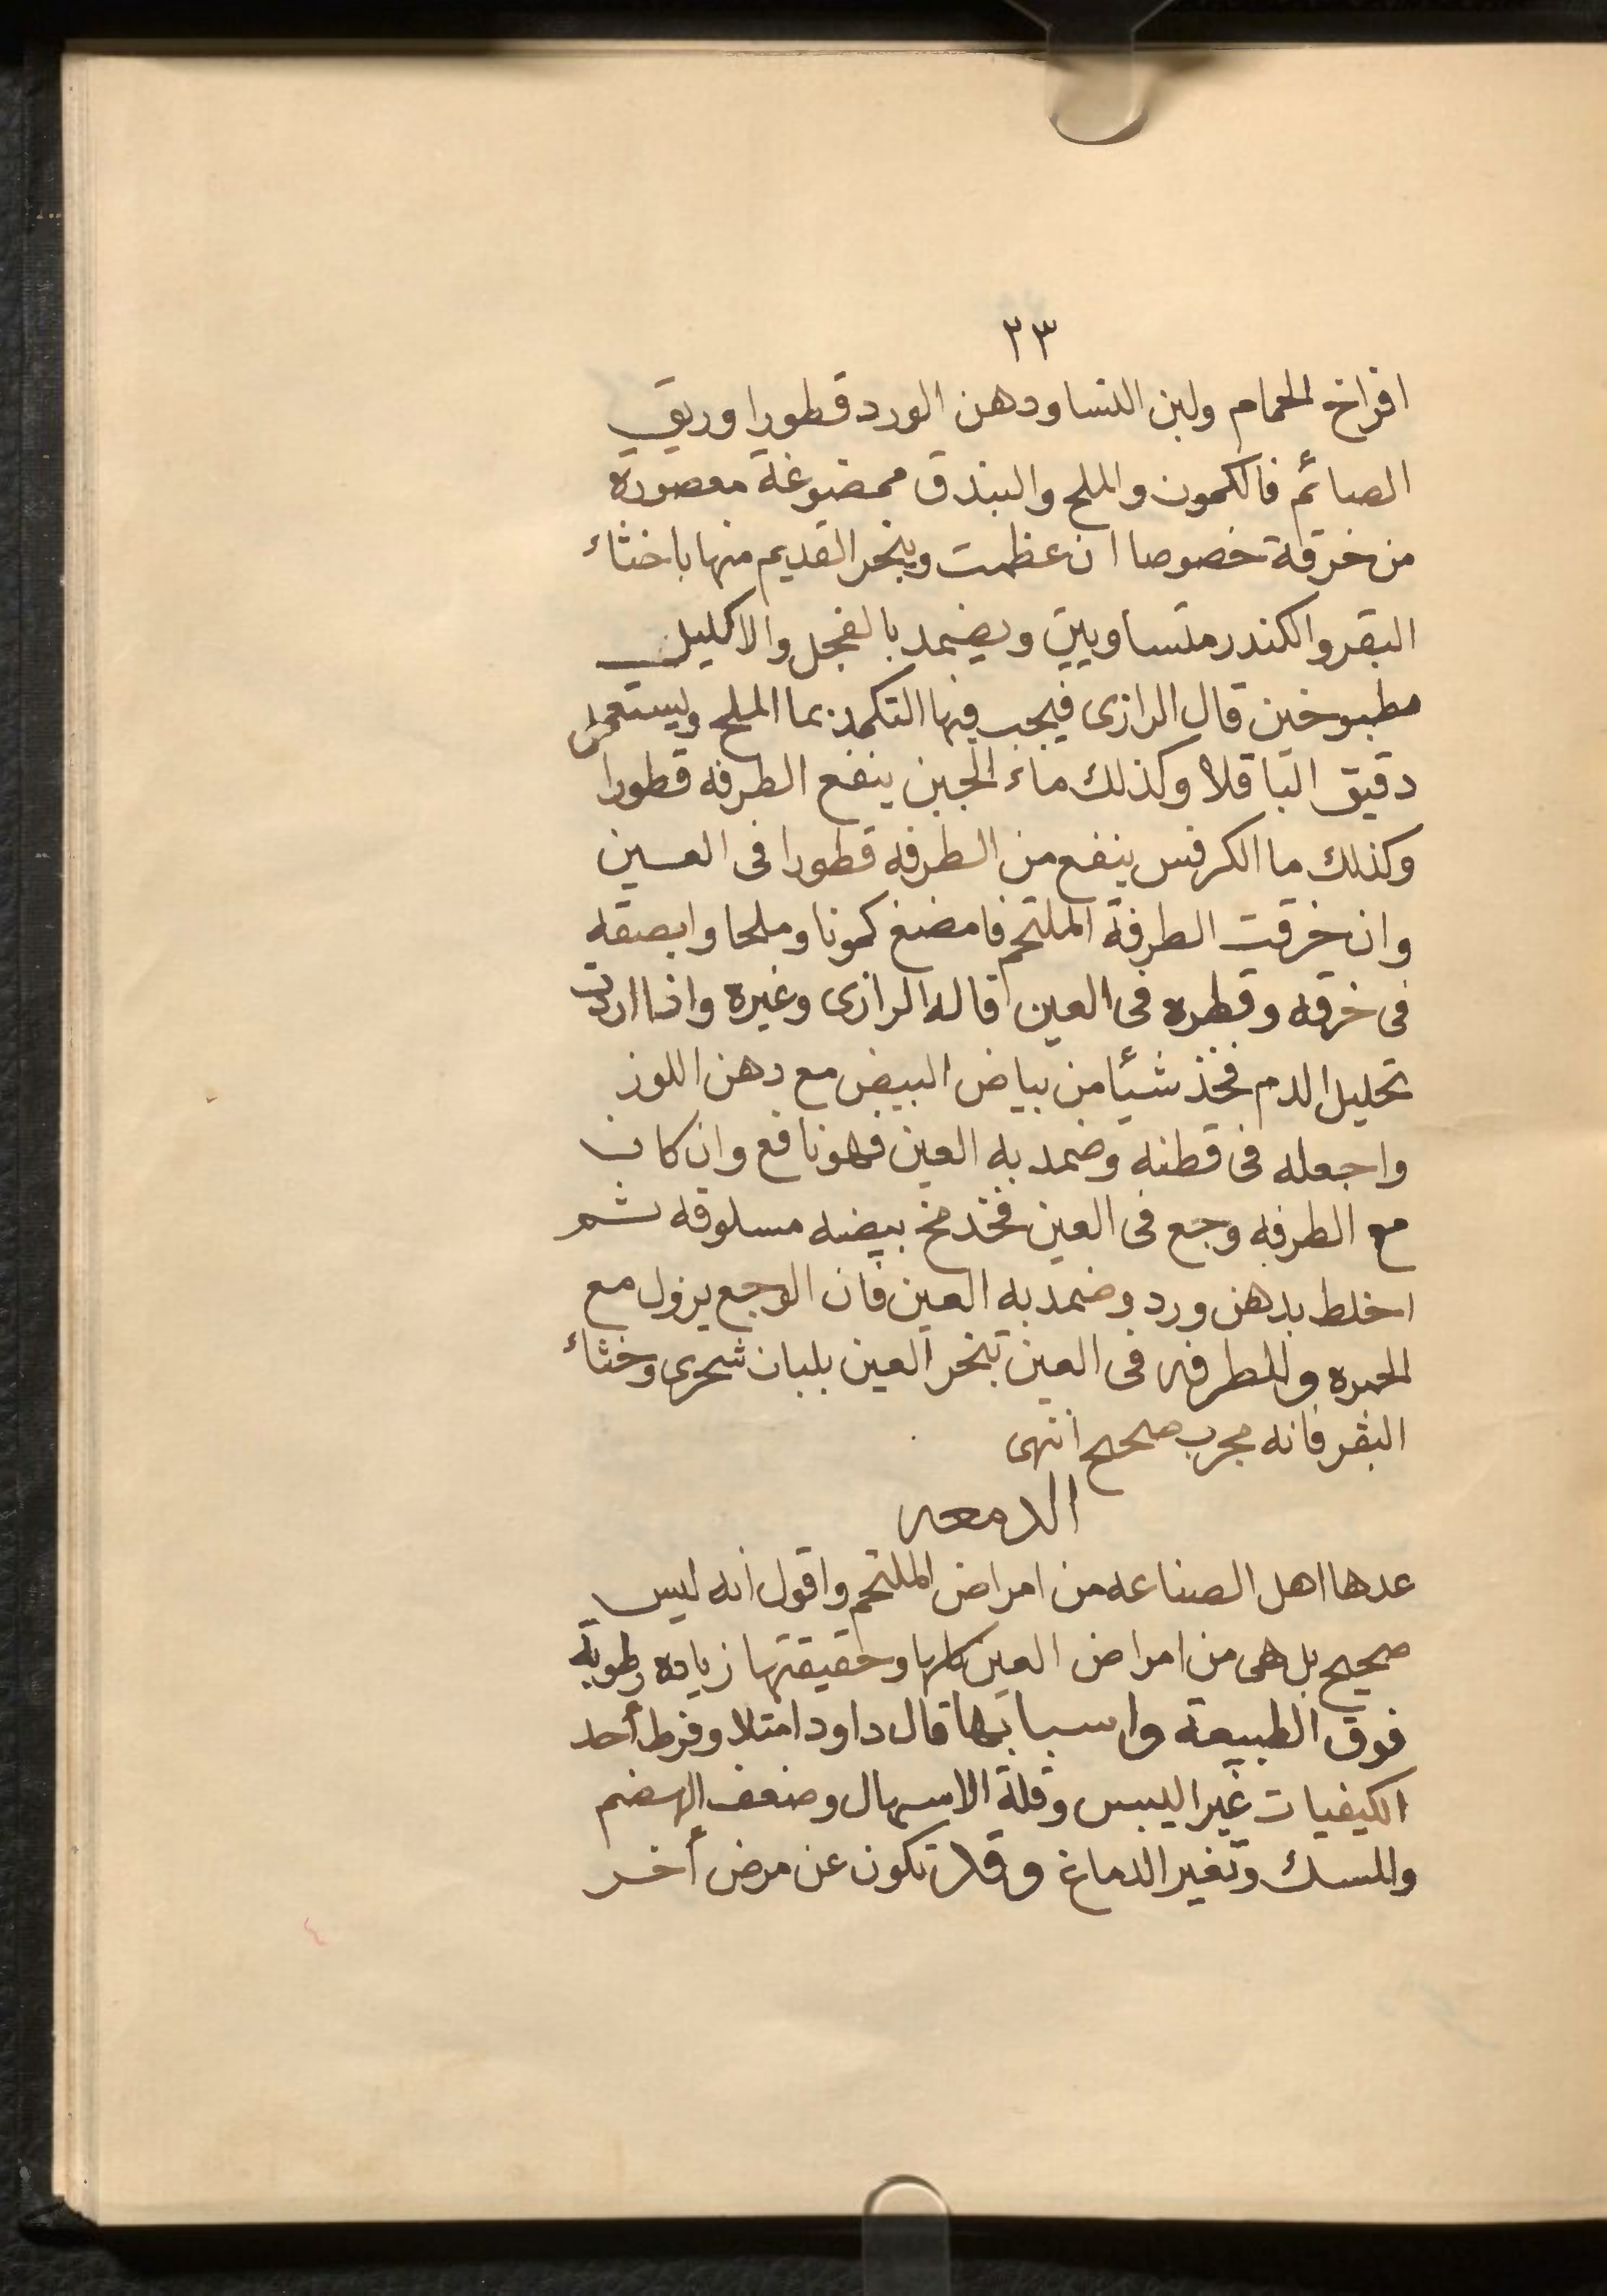 ٢٣
افراخ الحمام ولبن النسا ودهن الورد قطورا وريق
الصائم فالكمون والملح والبندق ممضوغة معصوره
من خرقة خصوصا ان عظمت ويبخر القديم منها باخثاء
البقر والكندر متساويين ويضمد بالفجل والاكليل
مطبوخين قال الرازى فيجب فيها التكمد بما الملح وليستعمل
دقيق الباقلا وكذلك ماء الجبن ينفع الطرفه قطورا
وكذلك ما الكرفس ينفع من الطرفه قطورا فى العين
وان خرقت الطرفة الملتحم فامضغ كمونا وملحا وابصقه
فى خرقه وقطره فى العين قاله الرازى وغيره واذا اردت
تحليل الدم فخذ شيئا من بياض البيض مع دهن اللوز
واجعله فى قطنه وضمد به العين فهو نافع وان كان
مع الطرفه وجع فى العين فخذ مخ بيضه مسلوقه ثم
اخلط بدهن ورد وضمد به العين فان الوجع يزول مع
الحمره وللطرفه فى العين تبخر العين بلبان شحرى وخثاء
البقر فانه مجرب صحيح انتهى
الدمعه
عدها اهل الصناعه من امراض الملتحم واقول انه ليس
صحيح بل هى من امراض العين كلها وحقيقتها زياده رطوبة
فوق الطبيعة واسبابها قال داود امتلا وفرط أحد
الكيفيات غير اليبس وقلة الاسهال وضعف الهضم
والمسك وتغير الدماغ وقد تكون عن مرض أخر
٤